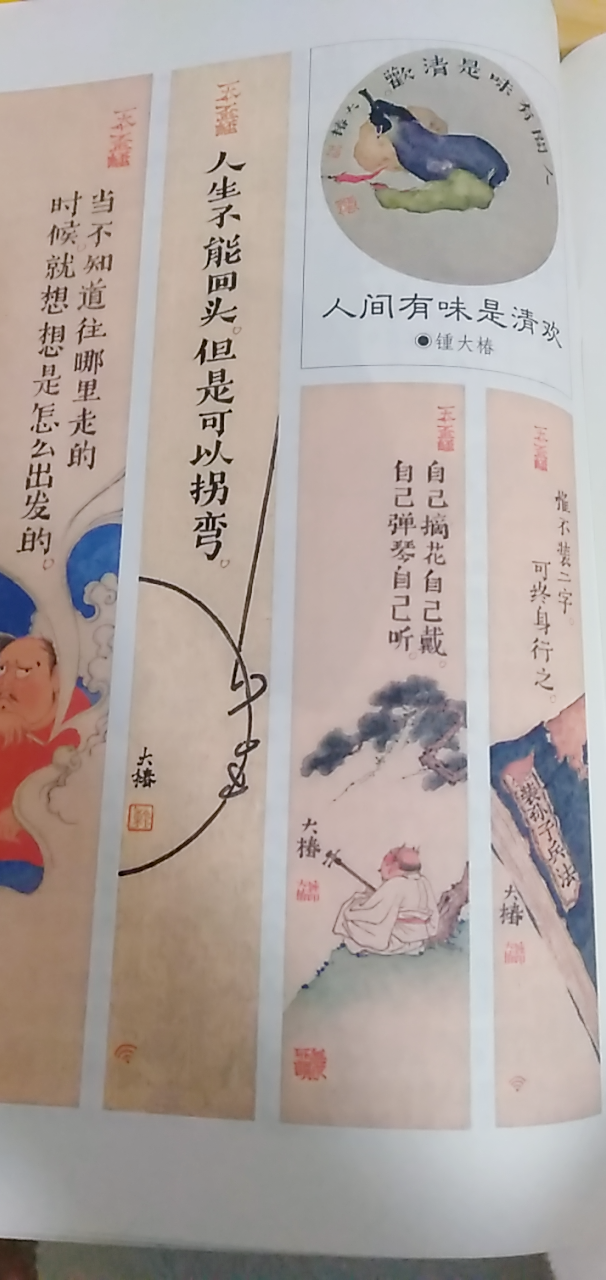 人间有味是清歡
大椿
人间有味是清欢
●锺大椿
当不知道往哪里走的
时候。就想想是怎么出发的。
人生不能回头。但是可以拐弯。
大椿
自己摘花自己戴。
自己弹琴自己听。
大椿
惟不装二字。
可终身行之。
装孙子兵法
大椿